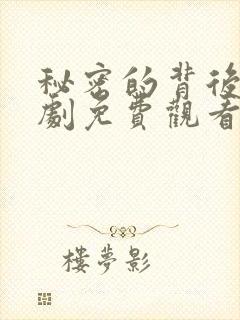 秘密的背後
劇免費觀看
樓夢影